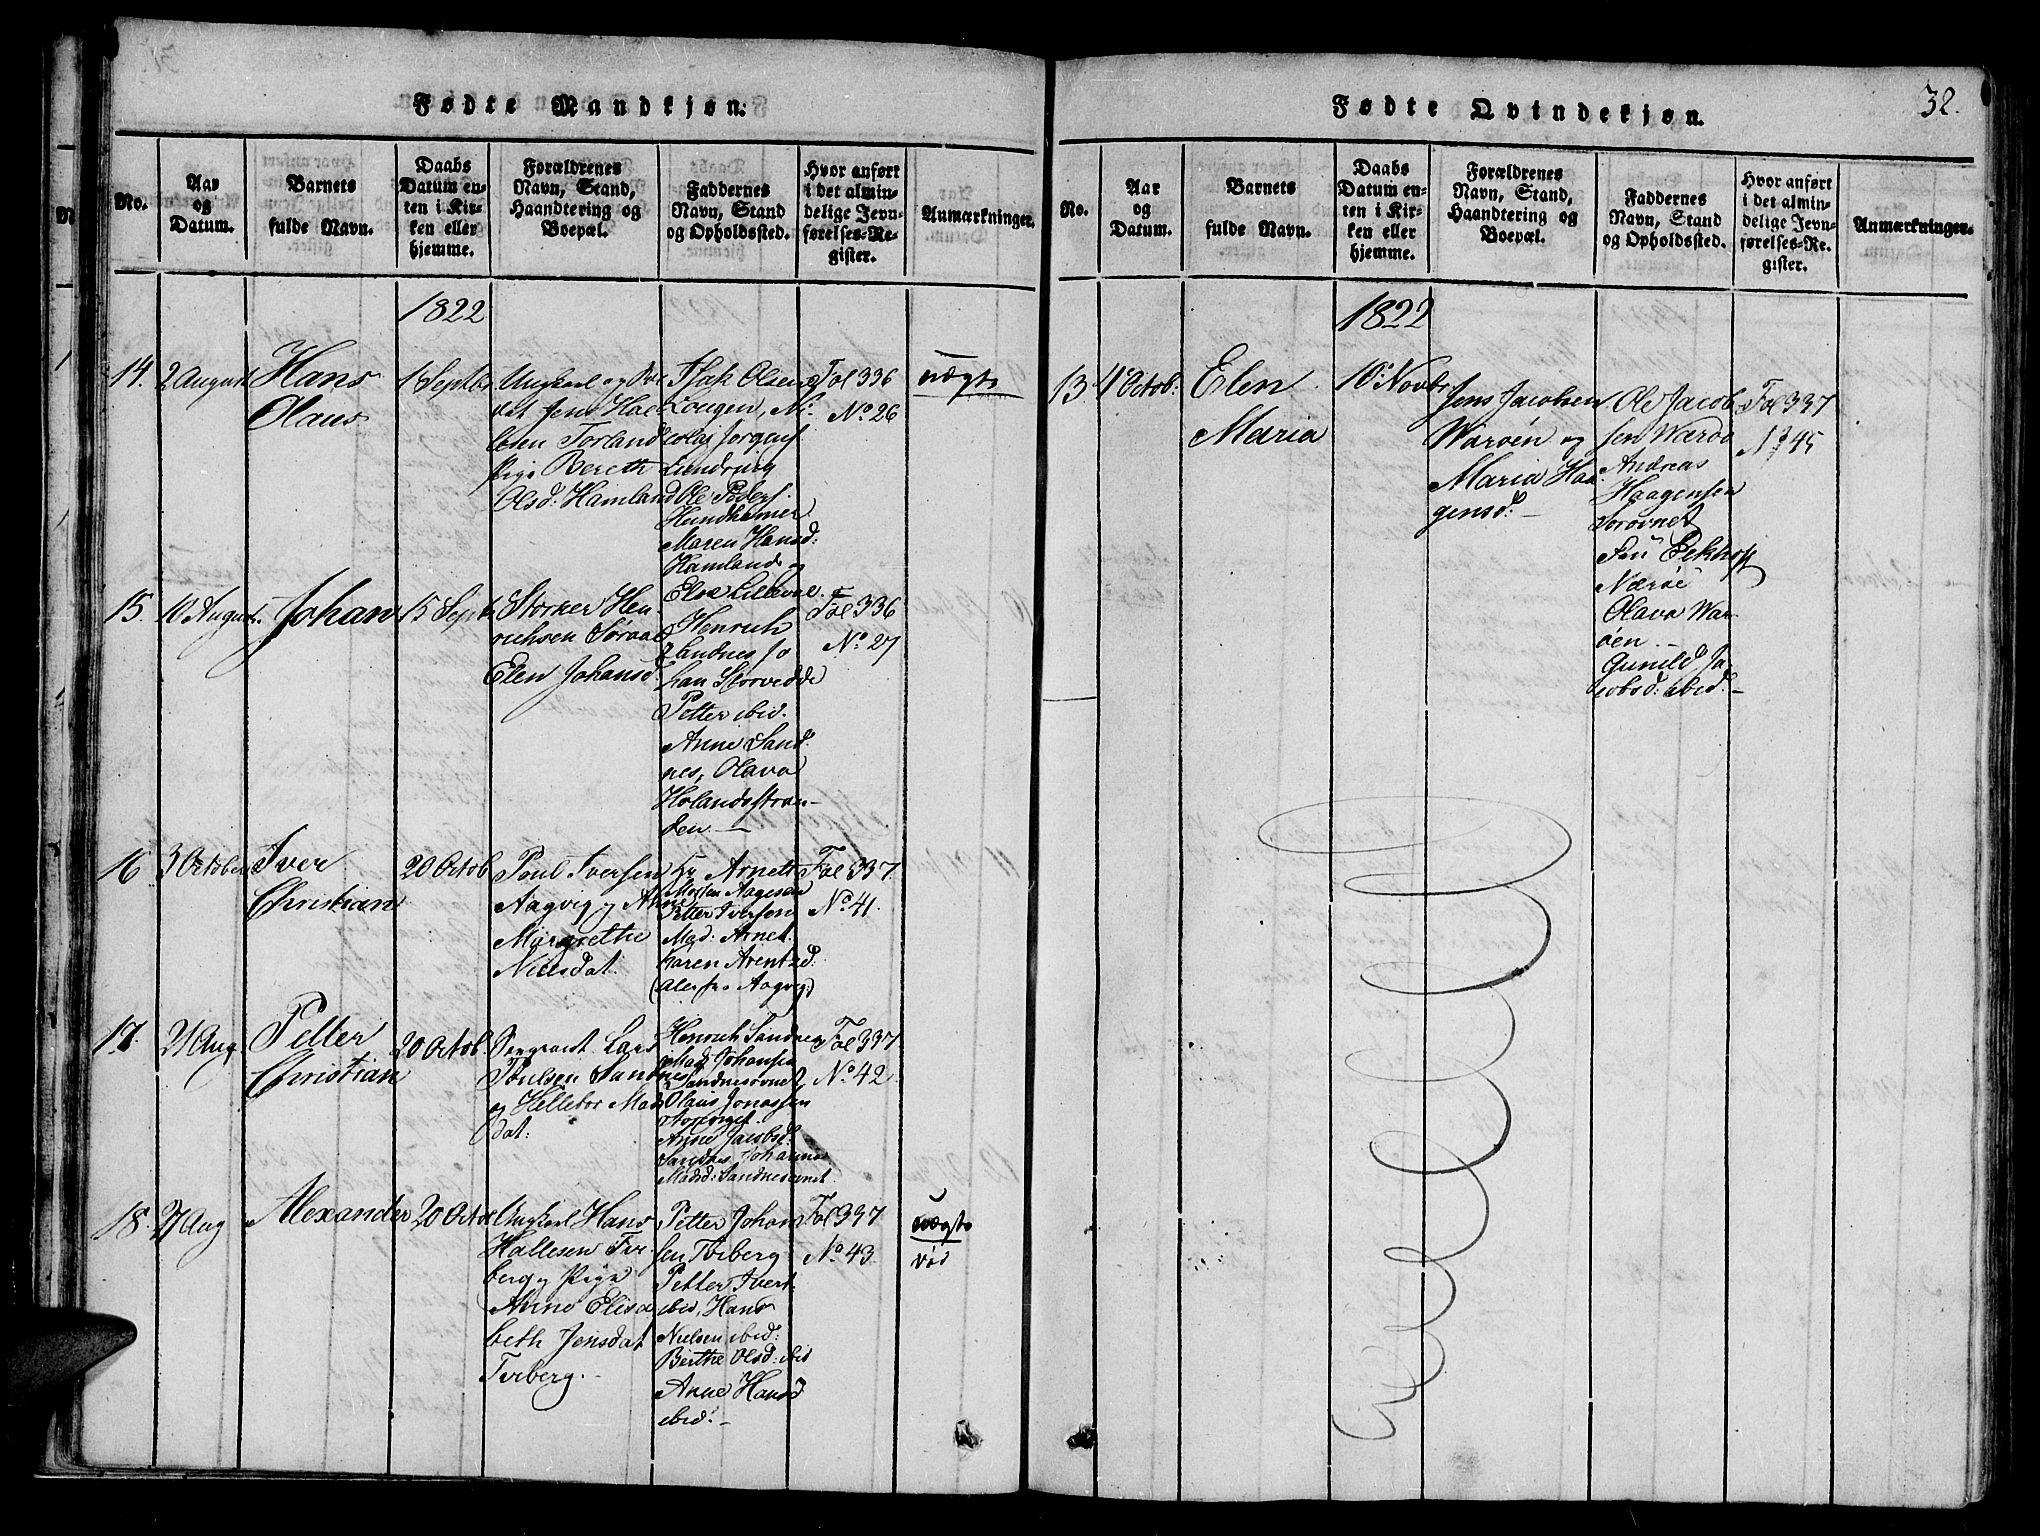 Fødte Mandkjøn.
No.
Aar
og
Datum.
Barnets
fulde Navn.
Daabs
Datum en-
ten i Kir-
ken eller
hjemme.
Forældrenes
Navn, Stand,
Haandtering og
Boepæl.
Faddernes
Navn, Stand
og Opholdssted.
Hvor anført
i det almin-
delige Jevn-
førelses-Re-
gister.
Anmærkninger.
1822
14.
2 August
Hans
Olaus
1 Septbr
Ungkarl og
Jens Hal-
lesen Torland
Pige Bereth
Olsd: Hamland
Isak Olsen
Lougen, Ni-
colaj Jørgens
Lundring
Ole Peders.
Hundhamer
Maren Hansd:
Hamland og
Elen
Fol 336
No. 26
uægte
15.
10 August.
Johan
15 Sept
Storker Hen-
richsen Søraa
Elen Johansd.
Henrich
Sandnes Jo
han Storvedde
Petter ibid.
Anne Sand
nes, Olava
Holandsstran-
den.—
Fol 336
No. 27
16
3 October
Iver
Christian
20 Octob
Poul Iversen
Aagvig og Anne
Margrethe
Nielsdat.
Hr Arnet
Morten Aagesen
Petter Iversen
Mad: Arnet.
Karen Arentsd.
Aagvig.)
Fol 337
No. 41.
17.
21 Aug.
Petter
Christian
20 Octob.
Sergeant Lars
Poulsen Sandnes
og Hellebor Mads
dat:
Henrich Sandnes
Mads Johansen
Sandnesøvnet
Olaus Jonassen
Anne Jacobsd:
Sandnes Johanna
Madsd: Sandnesøvnet
Fol 337
No. 42
18.
27 Aug
Alexander
20 Octob
Ungkarl Hans
Hallesen Fer-
berg og Pige
Anne Elisa
beth Jensdat
Ferberg.-
Petter Johan
sen Ferberg
Petter Ivers.
ibid, Hans
Nielsen ibid:
Berthe Olsd: ibid
Anne Hansd
ibid.-
Fol 337
No. 43
uægte
Fødte Qvindekjøn.
32.
No.
Aar
og
Datum.
Barnets
fulde Navn.
Daabs
Datum en-
ten i Kir-
ken eller
hjemme.
Forældrenes
Navn, Stand,
Haandtering og
Boepæl.
Faddernes
Navn, Stand
og Opholdssted.
Hvor anført
i det almin-
delige Jevn-
førelses-Re-
gister.
Anmærkninger.
1822
13
4 Octob.
Elen
Maria
10 Novbr
Jens Jacobsen
Warøen og
Maria Haa
gensd:-
Ole Jacob
sen Warøe
Andreas
Haagensen
Sørøvnet
Nærøe
Olava War-
øen.-
Gunild Ja-
cobsd: ibid.-
Fol 337
No 45